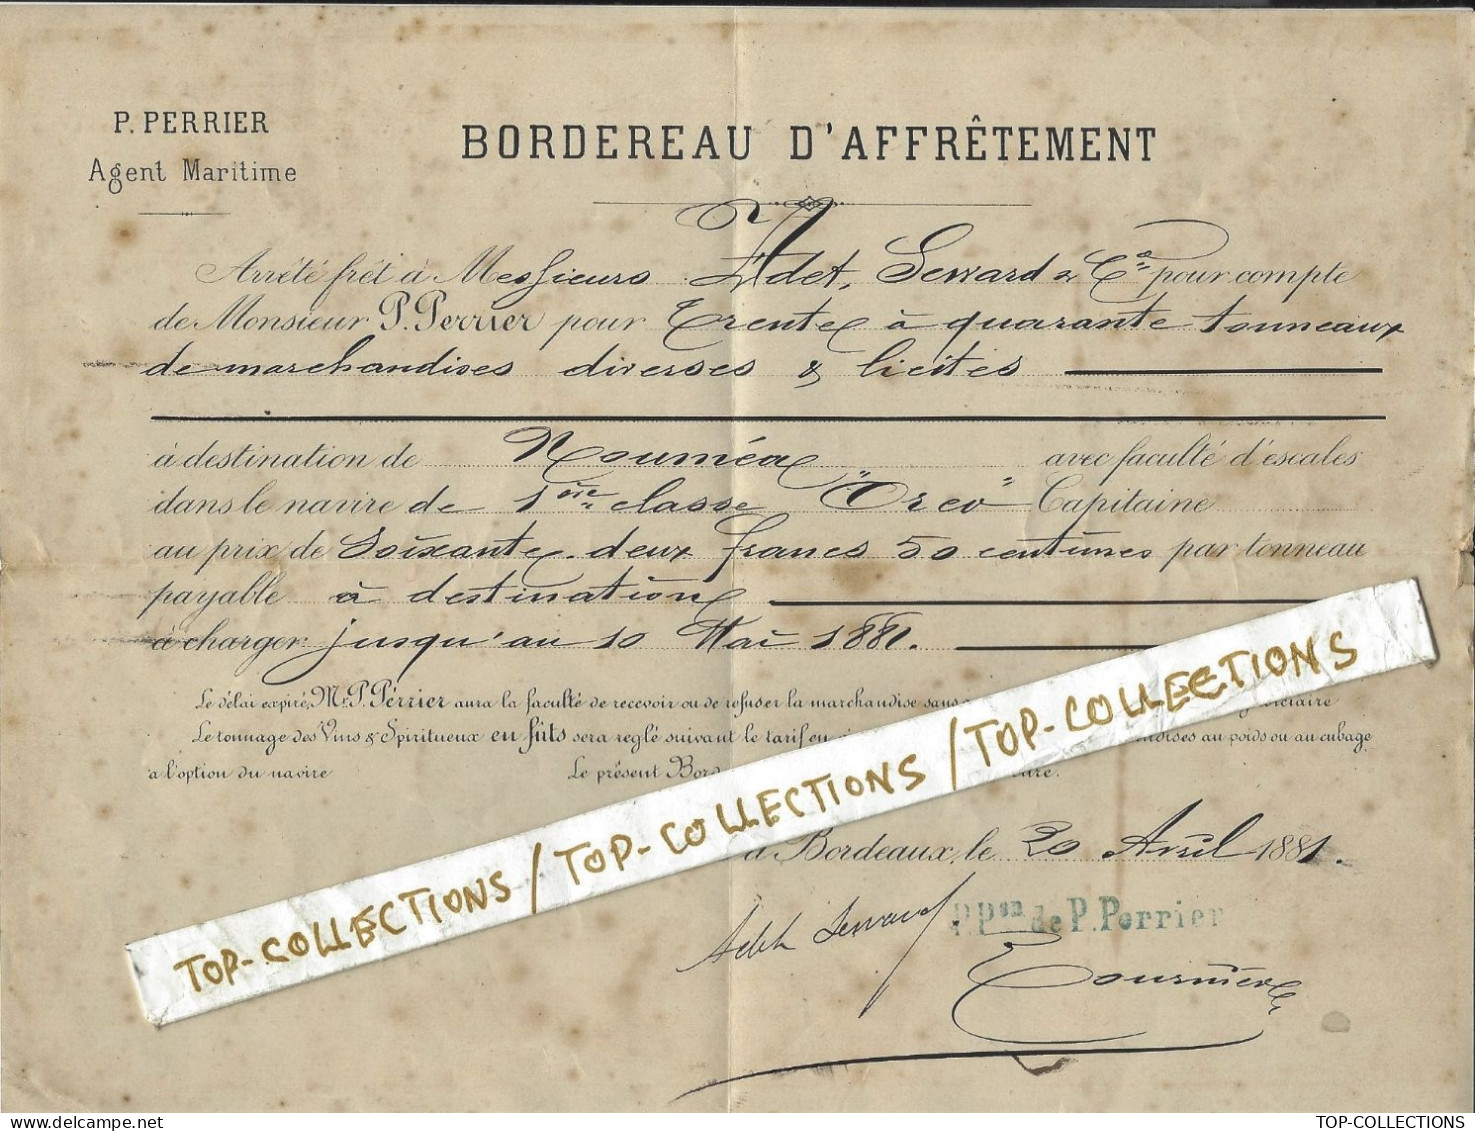 P. PERRIER
Agent Maritime
BORDEREAU D'AFFRÊTEMENT
Arrêté frêt à Messieurs Adet, Seward & Cie pour compte
de Monsieur P. Perrier pour Trente à quarante tonneaux
de marchandises diverses & licites
à destination de Nouméa avec faculté d'escales
dans le navire de 1ère classe "Orco" Capitaine
au prix de Soixante deux francs 50 centimes par tonneau
payable à destination
à charger jusqu'au 10 Mai 1881.
Le délai expiré, Mr. P. Périer aura la faculté de recevoir ou de refuser la marchandise sans
Le tonnage des Vins & Spiritueux en fûts sera réglé suivant le tarif en au poids ou au cubage
à l'option du navire Le présent
TOP-COLLECTIONS / TOP-COLLECTIONS / TOP-COLLECTIONS
à Bordeaux, le 20 Avril 1881.
Adet Seward
P. Pon de P. Perrier
TOP-COLLECTIONS